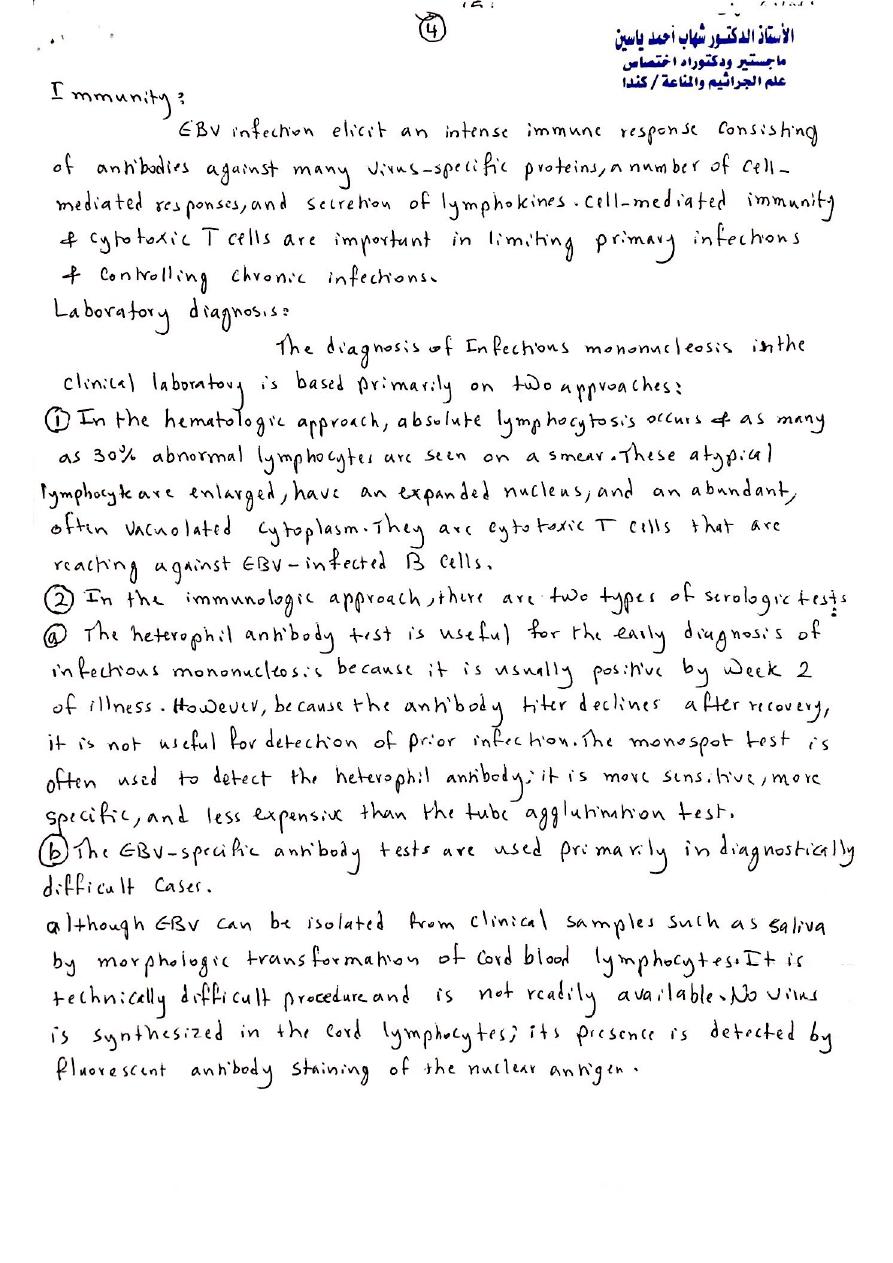 ④
الأستاذ الدكتور شهاب أحمد ياسين
ماجستير ودكتوراه اختصاص
علم الجراثيم والمناعة / كندا
Immunity:
EBV infection elicit an intense immune response consisting
of antibodies against many virus-specific proteins, a number of cell-
mediated responses, and secretion of lymphokines. cell-mediated immunity
& cytotoxic T cells are important in limiting primary infections
& controlling chronic infections.
Laboratory diagnosis:
The diagnosis of Infectious mononucleosis in the
clinical laboratory is based primarily on two approaches:
① In the hematologic approach, absolute lymphocytosis occurs & as many
as 30% abnormal lymphocytes are seen on a smear. These atypical
lymphocyte are enlarged, have an expanded nucleus, and an abundant,
often vacuolated cytoplasm. They are cytotoxic T cells that are
reacting against EBV-infected B cells.
② In the immunologic approach, there are two types of serologic tests:
ⓐ The heterophil antibody test is useful for the early diagnosis of
infectious mononucleosis because it is usually positive by week 2
of illness. However, because the antibody titer declines after recovery,
it is not useful for detection of prior infection. The monospot test is
often used to detect the heterophil antibody; it is more sensitive, more
specific, and less expensive than the tube agglutination test.
ⓑ The EBV-specific antibody tests are used primarily in diagnostically
difficult cases.
although EBV can be isolated from clinical samples such as saliva
by morphologic transformation of cord blood lymphocytes. It is
technically difficult procedure and is not readily available. No virus
is synthesized in the cord lymphocytes; its presence is detected by
fluorescent antibody staining of the nuclear antigen.